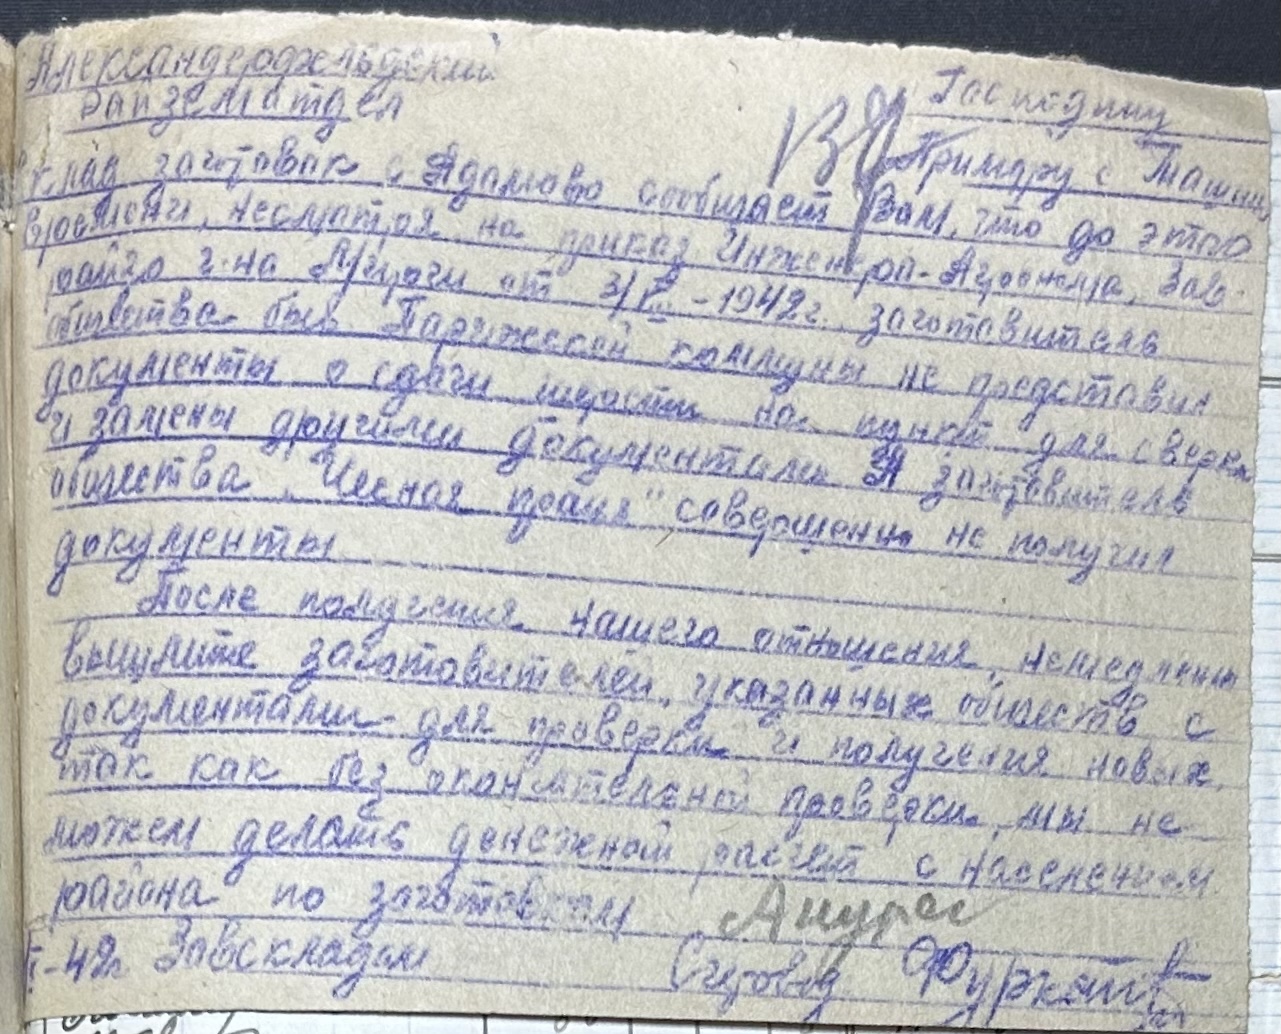 Александерфельдский
райземотдел
Господину
Примару с Ташино
Склад заготовок с Адамово сообщает Вам, что до этого
времени, несмотря на приказ Инженера-Агронома, Зав.
райзо г-на от 3/ -1942г. заготовитель
общества быв Парижской коммуны не представил
документы о сдачи шерсти на пункт для сверки
и замены другими документами Я заготовитель
общества "Чесная праця" совершенно не получил
документы
После получения нашего отношения, немедленно
вышлите заготовителей, указанных обществ с
документами для проверки и получения новых,
так как без окончательной проверки, мы не
можем делать денежный расчет с населением
района по заготовкам
-42г Завскладом
Счетовод